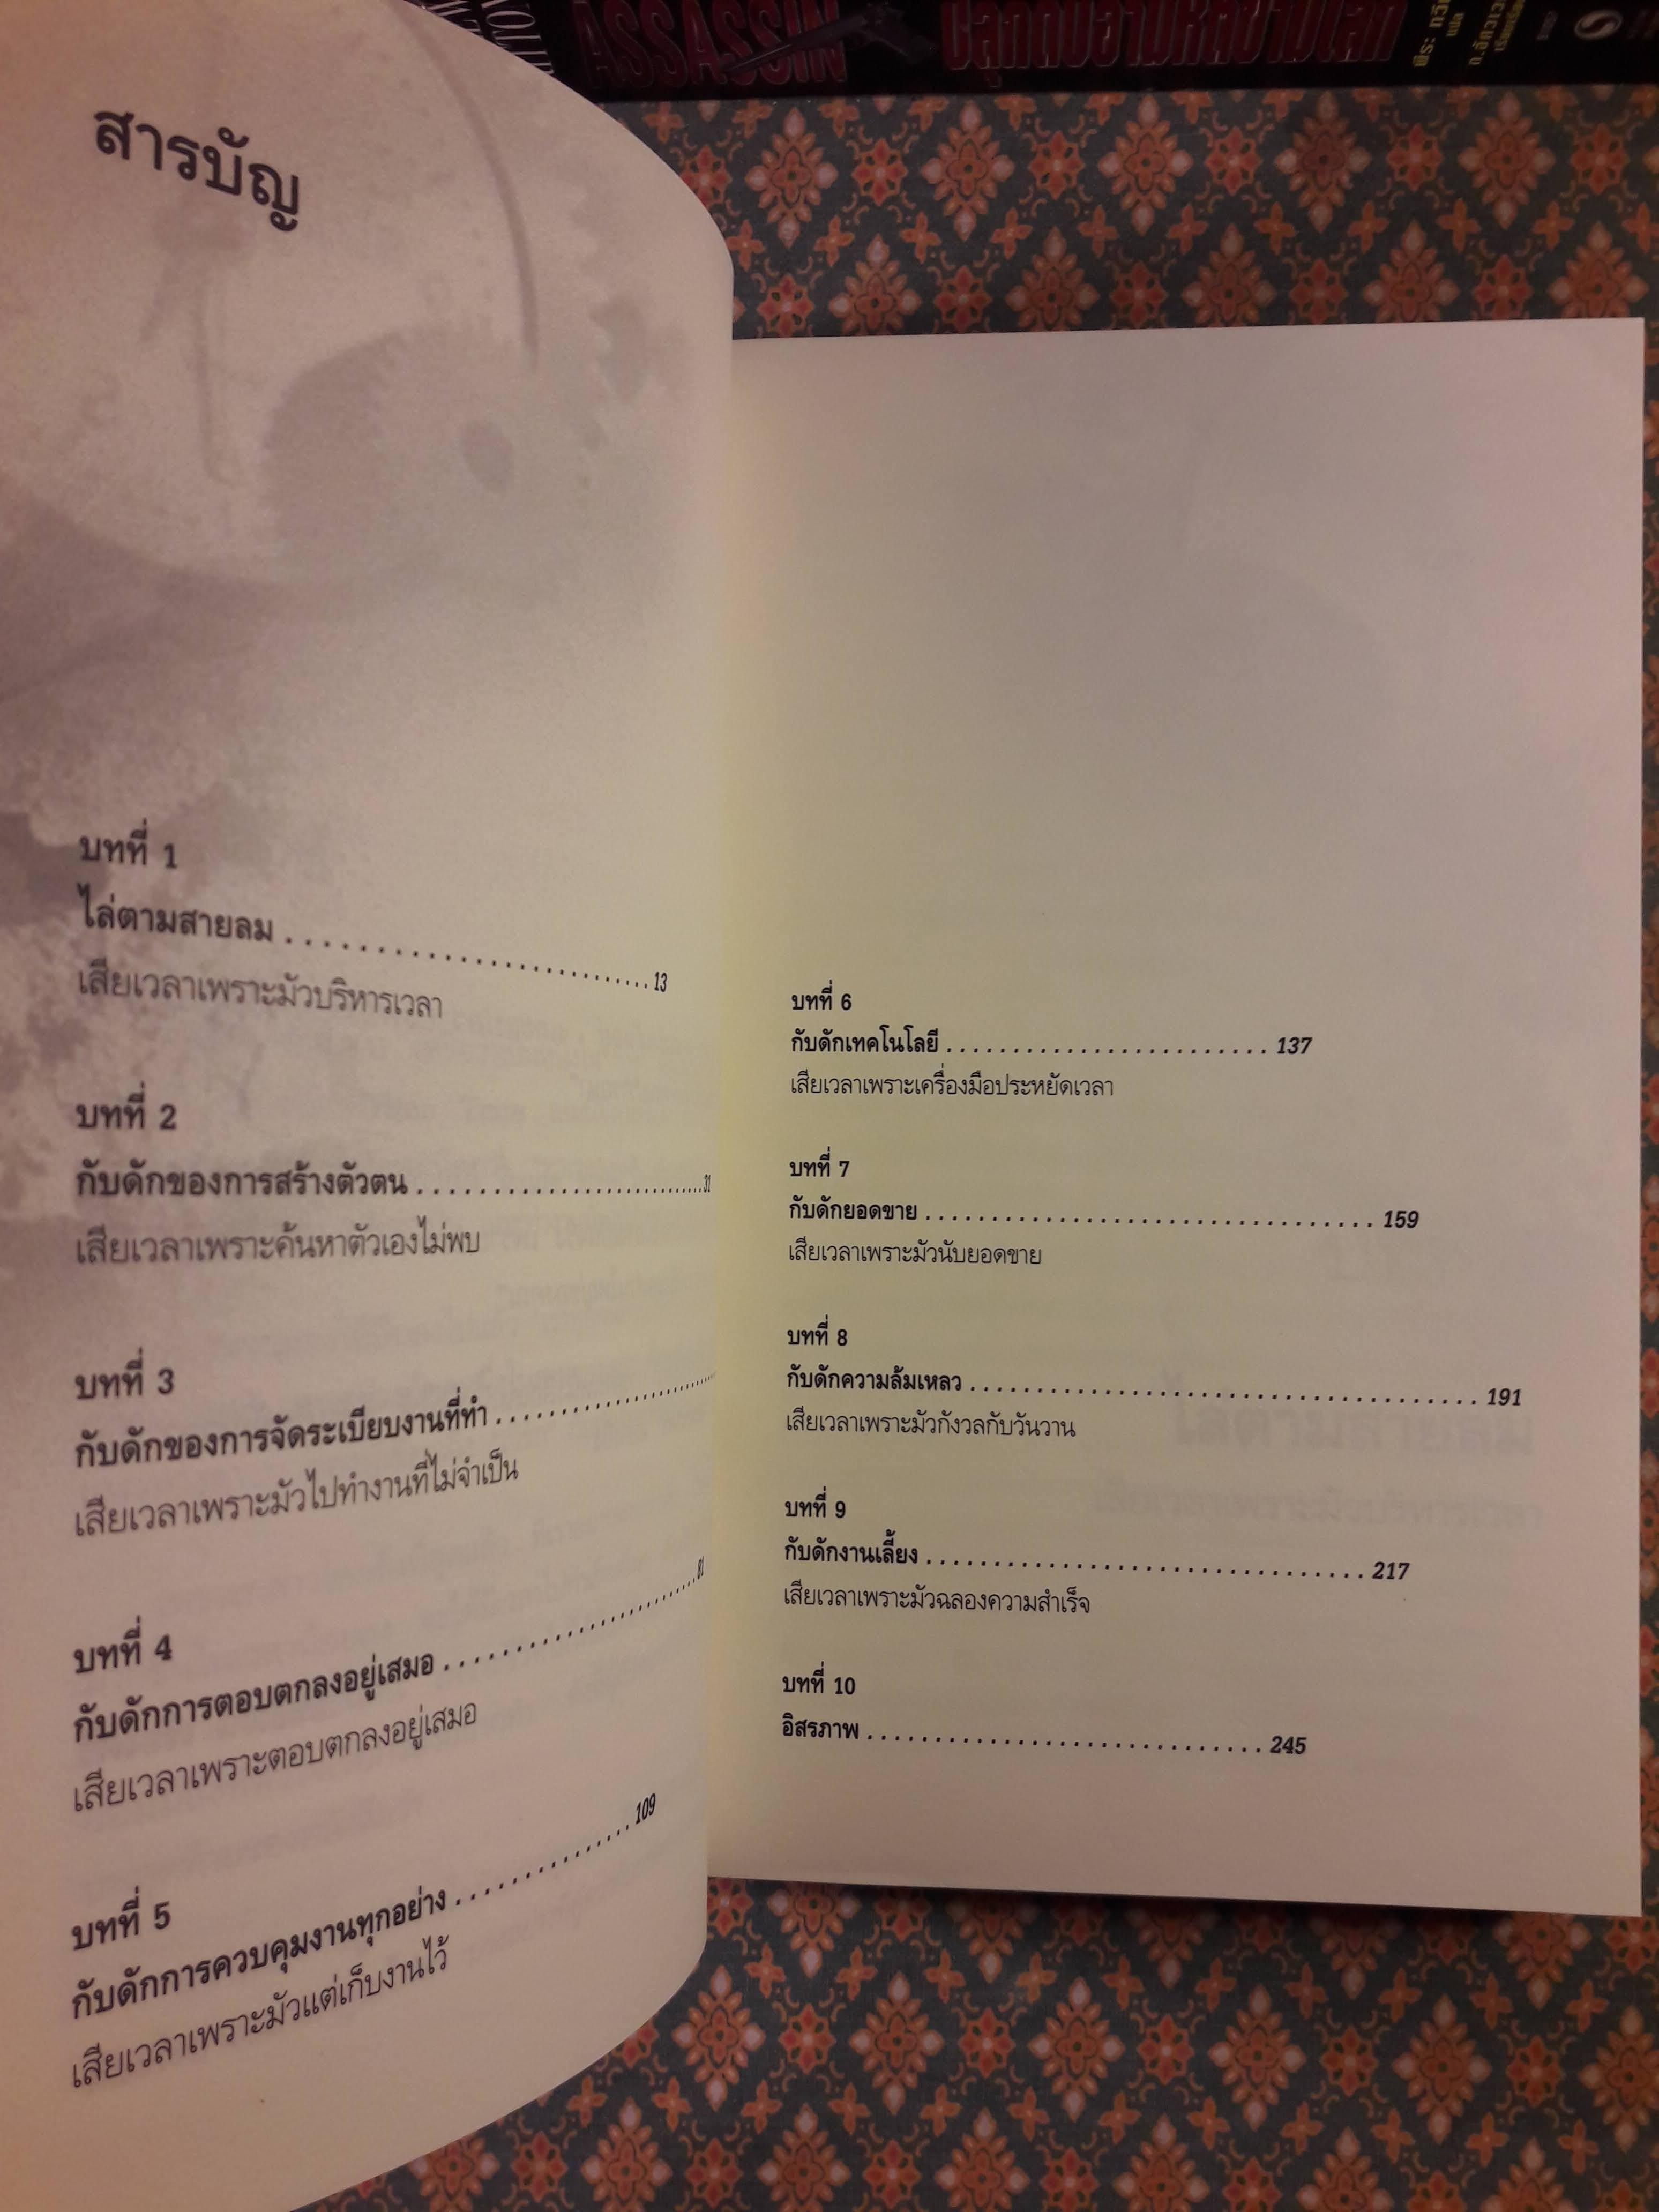 ASSASSIN
สารบัญ
บทที่ 1
ไล่ตามสายลม . . . . . . . . . . . . . . . . . . . . . . . . . . 13
เสียเวลาเพราะมัวบริหารเวลา
บทที่ 2
กับดักของการสร้างตัวตน . . . . . . . . . . . . . . . . . . . . . . . . 31
เสียเวลาเพราะค้นหาตัวเองไม่พบ
บทที่ 3
กับดักของการจัดระเบียบงานที่ทำ . . . . . . . . . . . . . . . . . . . . . .
เสียเวลาเพราะมัวไปทำงานที่ไม่จำเป็น
บทที่ 4
กับดักการตอบตกลงอยู่เสมอ . . . . . . . . . . . . . . . . . . . . . . . 81
เสียเวลาเพราะตอบตกลงอยู่เสมอ
บทที่ 5
กับดักการควบคุมงานทุกอย่าง . . . . . . . . . . . . . . . . 109
เสียเวลาเพราะมัวแต่เก็บงานไว้
บทที่ 6
กับดักเทคโนโลยี . . . . . . . . . . . . . . . . . . . . . . . . 137
เสียเวลาเพราะเครื่องมือประหยัดเวลา
บทที่ 7
กับดักยอดขาย . . . . . . . . . . . . . . . . . . . . . . . . . . . . . . . . . . 159
เสียเวลาเพราะมัวนับยอดขาย
บทที่ 8
กับดักความล้มเหลว . . . . . . . . . . . . . . . . . . . . . . . . . . . . . . . . . . . . . . 191
เสียเวลาเพราะมัวกังวลกับวันวาน
บทที่ 9
กับดักงานเลี้ยง . . . . . . . . . . . . . . . . . . . . . . . . . . . . . . . . . 217
เสียเวลาเพราะมัวฉลองความสำเร็จ
บทที่ 10
อิสรภาพ . . . . . . . . . . . . . . . . . . . . . . . . . . . . . . 245